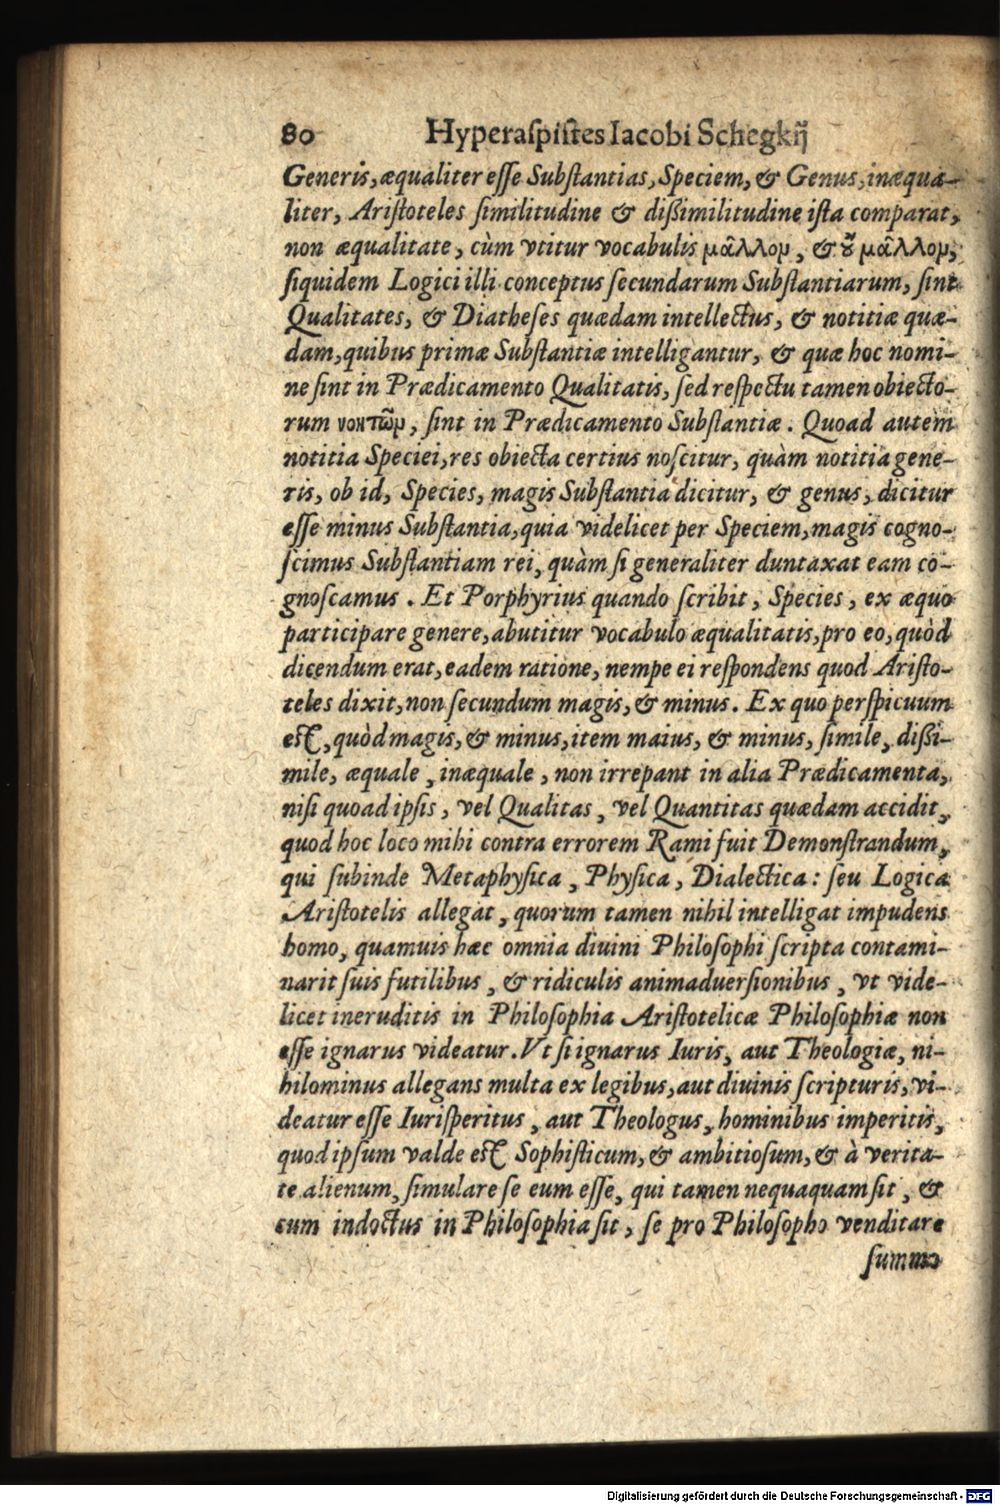 80 Hyperaſpiſtes Iacobi Schegkij̃
Generis, æqualiter eſſe Subſtantias, Speciem, & Genus, inæqua-
liter, Ariſtoteles ſimilitudine & dißimilitudine iſta comparat,
non æqualitate, cùm vtitur vocabulis μα̃λλομ, & ȣ̓ μα̃λλομ,
ſiquidem Logici illi conceptus ſecundarum Subſtantiarum, ſint
Qualitates, & Diatheſes quædam intellectus, & notitiæ quæ-
dam, quibus primæ Subſtantiæ intelligantur, & quæ hoc nomi-
ne ſint in Prædicamento Qualitatis, ſed reſpectu tamen obiecto-
rum νοητω̃μ, ſint in Prædicamento Subſtantiæ. Quoad autem
notitia Speciei, res obiecta certius noſcitur, quàm notitia gene-
ris, ob id, Species, magis Subſtantia dicitur, & genus, dicitur
eſſe minus Subſtantia, quia videlicet per Speciem, magis cogno-
ſcimus Subſtantiam rei, quàm ſi generaliter duntaxat eam co-
gnoſcamus. Et Porphyrius quando ſcribit, Species, ex æquo
participare genere, abutitur vocabulo æqualitatis, pro eo, quòd
dicendum erat, eadem ratione, nempe ei reſpondens quod Ariſto-
teles dixit, non ſecundum magis, & minus. Ex quo perſpicuum
eſt, quòd magis, & minus, item maius, & minus, ſimile, dißi-
mile, æquale, inæquale, non irrepant in alia Prædicamenta,
niſi quoad ipſis, vel Qualitas, vel Quantitas quædam accidit,
quod hoc loco mihi contra errorem Rami fuit Demonſtrandum,
qui ſubinde Metaphyſica, Phyſica, Dialectica: ſeu Logica
Ariſtotelis allegat, quorum tamen nihil intelligat impudens
homo, quamuis hæc omnia diuini Philoſophi ſcripta contami-
narit ſuis futilibus, & ridiculis animaduerſionibus, vt vide-
licet ineruditis in Philoſophia Ariſtotelicæ Philoſophiæ non
eſſe ignarus videatur. Vt ſi ignarus Iuris, aut Theologiæ, ni-
hilominus allegans multa ex legibus, aut diuinis ſcripturis, vi-
deatur eſſe Iuriſperitus, aut Theologus, hominibus imperitis,
quod ipſum valde eſt Sophiſticum, & ambitioſum, & à verita-
te alienum, ſimulare ſe eum eſſe, qui tamen nequaquam ſit, &
cum indoctus in Philoſophia ſit, ſe pro Philoſopho venditare
ſummo
Digitalisierung gefördert durch die Deutsche Forschungsgemeinschaft - DFG